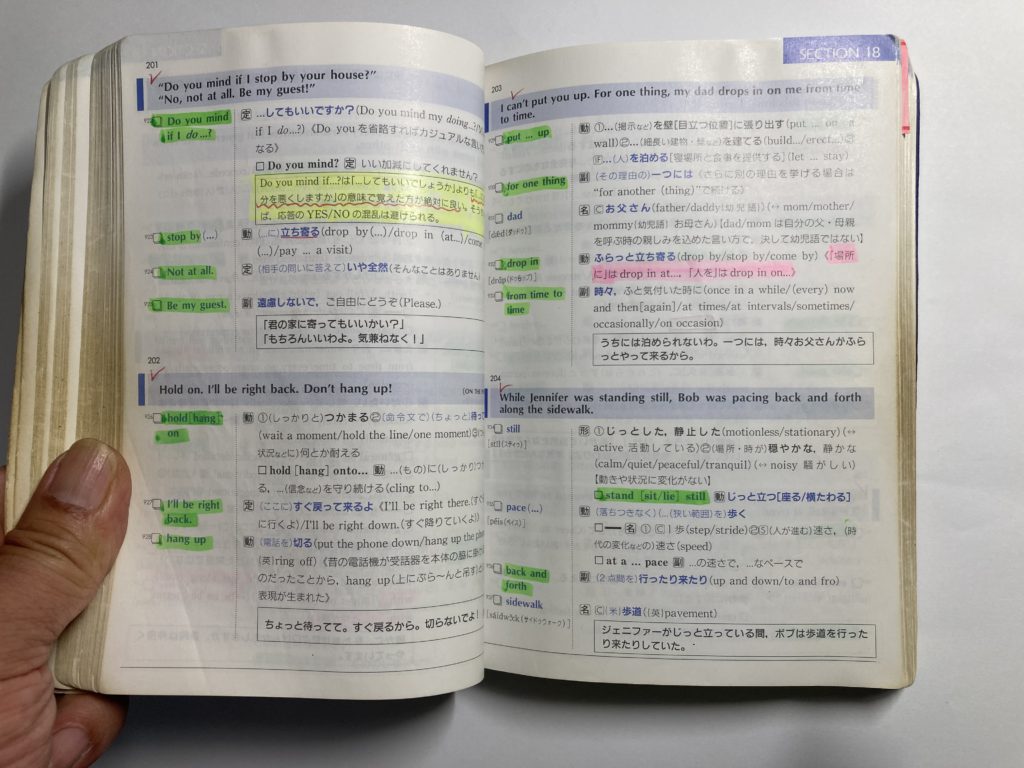 201
"Do you mind if I stop by your house?"
"No, not at all. Be my guest!"
Do you mind
if I do...?
定 …してもいいですか？(Do you mind my doing...?/
if I do...?)《Do you を省略すればカジュアルな
なる》
Do you mind? 定 いい加減にしてくれません？
Do you mind if...?は「…してもいいでしょうか」よりも
分を悪くしますか」の意味で覚えた方が絶対に良い。
ば、応答の YES/NO の混乱は避けられる。
stop by (...)
動 (…に)立ち寄る(drop by (...)/drop in (at...)/come
(...)/pay ... a visit)
Not at all.
定 (相手の問いに答えて)いや全然(そんなことはありません)
Be my guest.
副 遠慮しないで，ご自由にどうぞ(Please.)
「君の家に寄ってもいいかい？」
「もちろんいいわよ。気兼ねなく！」
202
Hold on. I'll be right back. Don't hang up!
hold [hang]
on
動 ①(しっかりと)つかまる②(命令文で)(ちょっと)待つ
(wait a moment/hold the line/one moment)③
状況などに)何とか耐える
hold [hang] onto... 動 …(もの)に(しっかり)つ
る，…(信念など)を守り続ける(cling to...)
I'll be right
back.
定 (ここに)すぐ戻って来るよ《I'll be right there.(すぐ
に行くよ)/I'll be right down.(すぐ降りていくよ)》
hang up
動 (電話を)切る(put the phone down/hang up the
(英)ring off)《昔の電話機が受話器を本体の脇に
のだったことから，hang up(上にぶら〜んと吊す)と
表現が生まれた》
ちょっと待ってて。すぐ戻るから。切らないでよ！
SECTION 18
203
I can't put you up. For one thing, my dad drops in on me from time
to time.
put ... up
動 ①…(掲示など)を壁[目立つ位置]に張り出す(put ... on
wall)②…(細長い建物・塀など)を建てる(build.../erect...)③
…(人)を泊める[寝場所と食事を提供する](let ... stay)
for one thing
副 (その理由の)一つには《さらに別の理由を挙げる場合は
"for another (thing)"で続ける》
dad
[dǽd(ダッド)]
名 Ⓒお父さん(father/daddy(幼児語))(↔mom/mother/
mommy(幼児語) お母さん)【dad/mom は自分の父・母親
を呼ぶ時の親しみを込めた言い方で，決して幼児語ではない】
drop in
動 ふらっと立ち寄る(drop by/stop by/come by)《「場所
に」は drop in at...，「人を」は drop in on...》
from time to
time
副 時々，ふと気付いた時に(once in a while/(every) now
and then[again]/at times/at intervals/sometimes/
occasionally/on occasion)
うちには泊められないわ。一つには，時々お父さんがふら
っとやって来るから。
204
While Jennifer was standing still, Bob was pacing back and forth
along the sidewalk.
still
[stíl(スティゥ)]
形 ①じっとした，静止した(motionless/stationary)(↔
active 活動している)②(場所・時が)穏やかな，静かな
(calm/quiet/peaceful/tranquil)(↔noisy 騒がしい)
【動きや状況に変化がない】
stand [sit/lie] still 動 じっと立つ[座る/横たわる]
pace (...)
[péis(ペイス)]
動 (落ちつきなく)(…(狭い範囲)を)歩く
━ 名 ①Ⓒ1歩(step/stride)②Ⓢ(人が進む)速さ，(時
代の変化などの)速さ(speed)
at a ... pace 副 …の速さで，…なペースで
back and
forth
副 (2点間を)行ったり来たり(up and down/to and fro)
sidewalk
[sáidwɔ̀ːk(サイドウォーク)]
名 Ⓒ(米)歩道((英)pavement)
ジェニファーがじっと立っている間，ボブは歩道を行った
り来たりしていた。